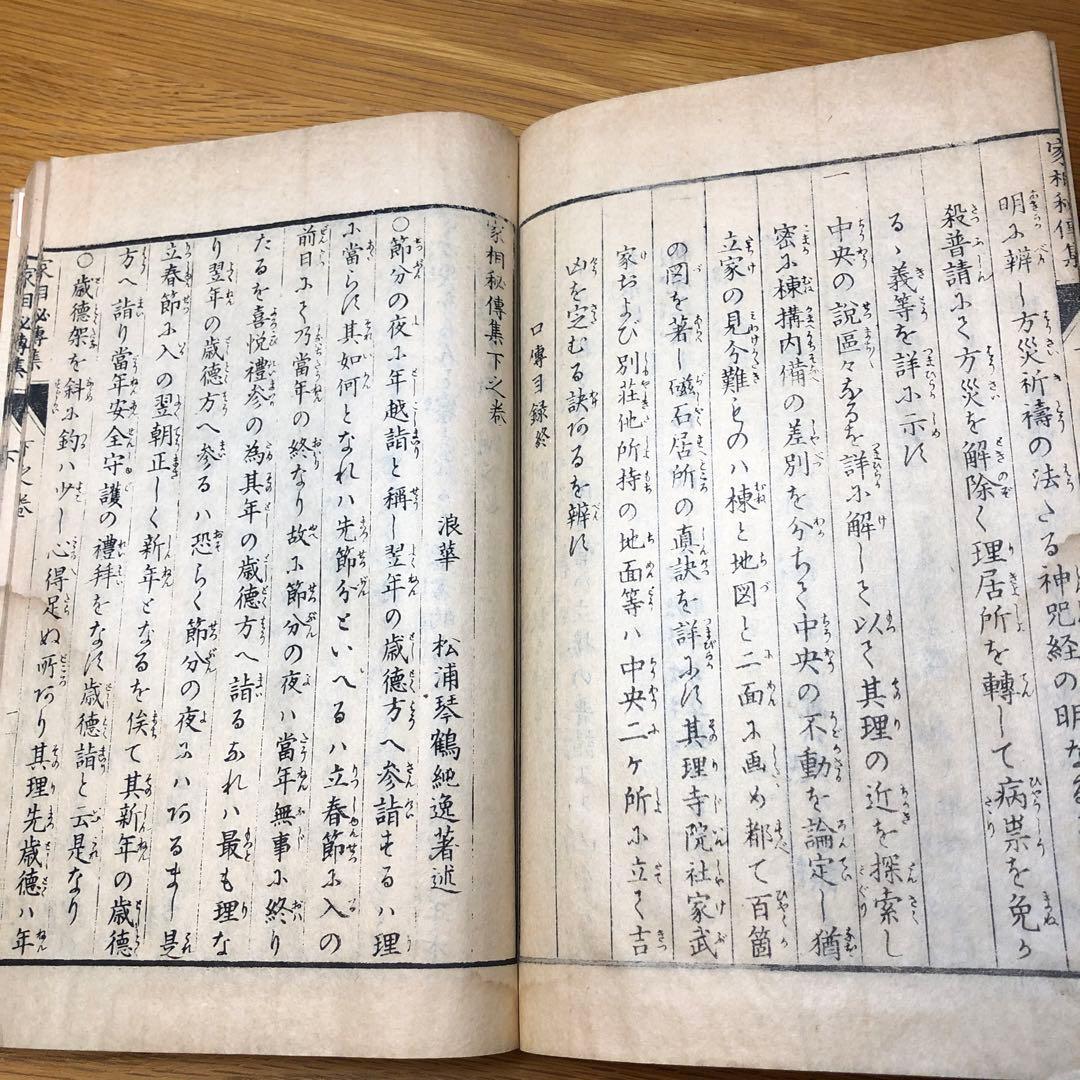 家相秘傳集
明ふ辨し方災祈禱の法たる神咒経の明な
殺普請ふて方災を解除く理居所を轉して病祟を免か
るゝ義等を詳ふ示す
一
中央の說區々なるを詳ふ解して以て其理の近を探索し
密ふ棟構内備の差別を分ちて中央の不動を論定し猶
立家の見分難きものハ棟と地図と二面ふ画め都て百箇
の図を著し磁石居所の真訣を詳ふす其理寺院社家武
家および別荘他所持の地面等ハ中央二ヶ所ふ立て吉
凶を定むる訣あるを辨す
口傳目録終
家相秘傳集下之巻
浪華 松浦琴鶴純逸著述
○節分の夜ふ年越詣と稱し翌年の歳徳方へ参詣する八理
ふ當らす其如何となれハ先節分といへるハ立春節ふ入の
前日ふて乃當年の終なり故ふ節分の夜ハ當年無事ふ終り
たるを喜悦禮参の為其年の歳徳方へ詣るなれハ最も理な
り翌年の歳徳方へ参るハ恐らく節分の夜ふハあるまし是
立春節ふ入の翌朝正しく新年となるを俟て其新年の歳徳
方へ詣り當年安全守護の禮拜をなす歳徳詣と云是なり
○歳徳架を斜ふ釣ハ少し心得足ぬ所あり其理先歳徳ハ年
家相秘傳集
下之巻
一